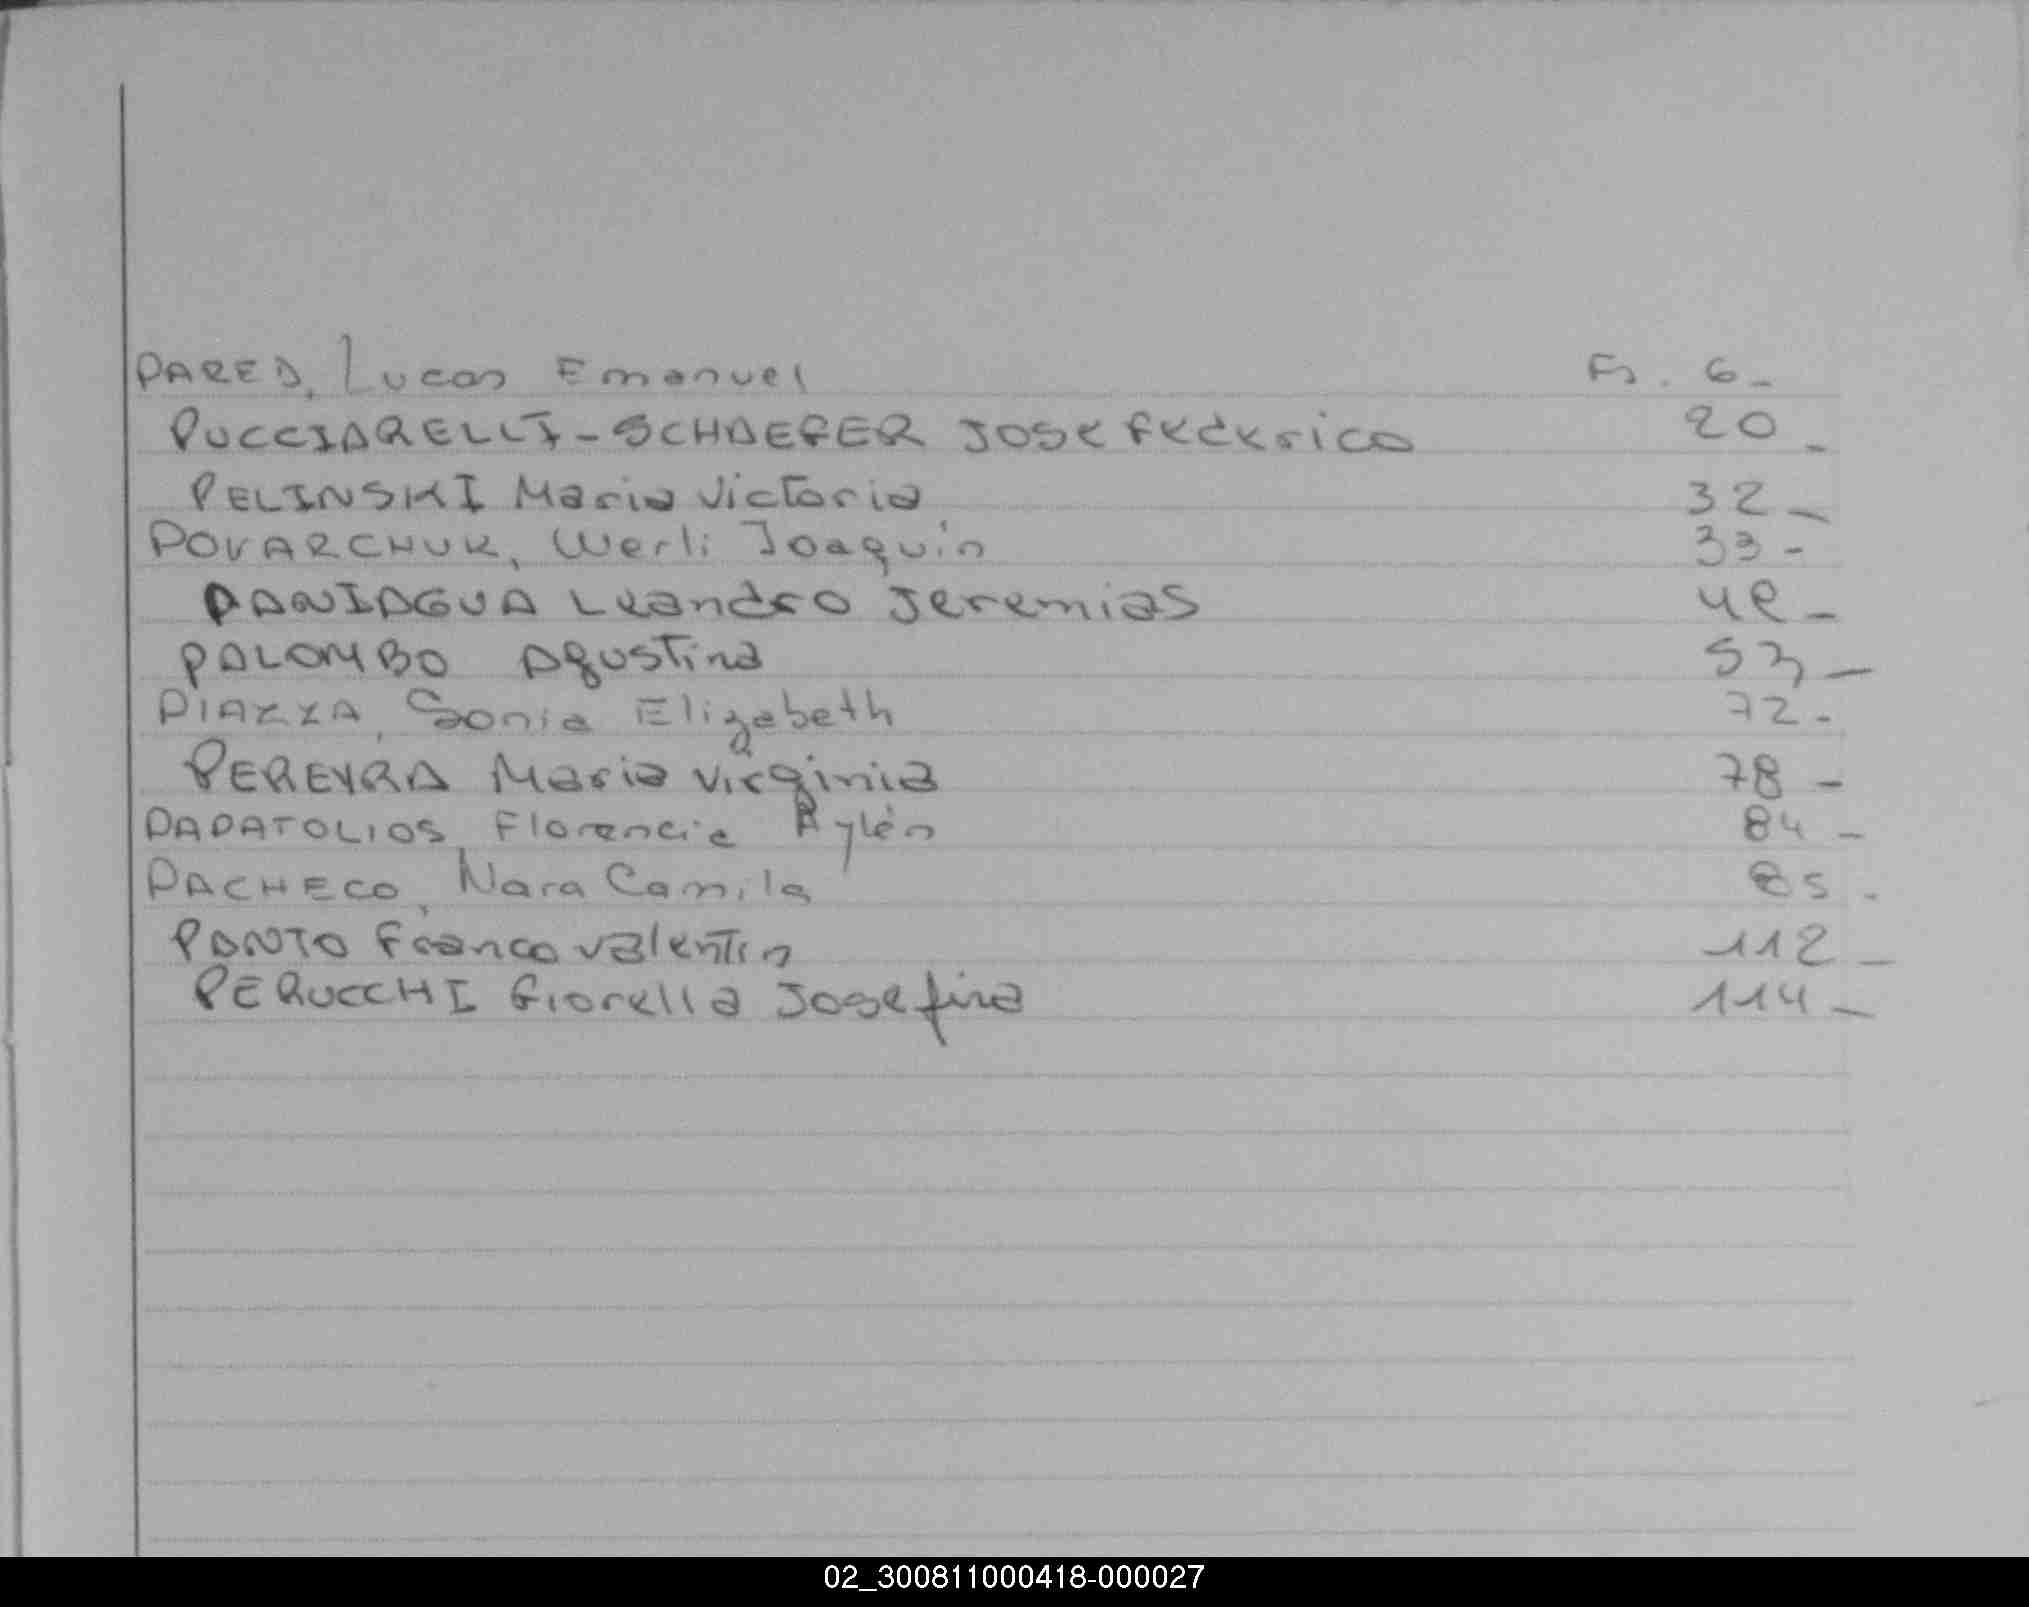 PARED, Lucas Emanuel Fs. 6-
PUCCIARELLI-SCHAEFER Jose federico 20-
PELINSKI Maria Victoria 32-
POVARCHUK, Werli Joaquín 33-
PANIAGUA Leandro Jeremias 42-
PALOMBO Agustina 53-
PIAZZA, Sonia Elizabeth 72-
PEREYRA Maria Virginia 78-
PAPATOLIOS, Florencia Aylén 84-
PACHECO, Nara Camila 85.
PANTO Franco valentin 112-
PERUCCHI Giorella Josefina 114-
02_300811000418-000027